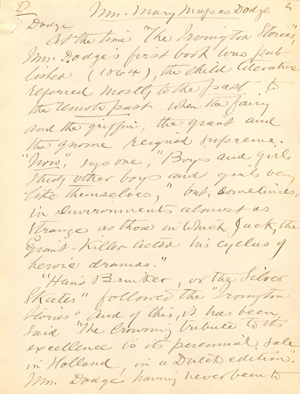 D Mrs. Mary Mapes Dodge
Dodge
At the time "The Irvington Stories",
Mrs. Dodge's first book was pub-
lished (1864), the child literature
referred mostly to the past, to
the remote past when the fairy
and the griffin, the giant and
the gnome reigned supreme.
"Now," says one, "Boys and girls
study other boys and girls very
like themselves," but, sometimes,
in environments almost as
strange as those in which Jack, the
Giant-Killer acted his cyclus of
heroic dramas."
"Hans Brinker, or the Silver
Skates" followed the "Irvington
Stories" and of this, it has been
said "The crowning tribute to its
excellence is its perennial sale
in Holland, in a Dutch edition".
Mrs. Dodge having never been to